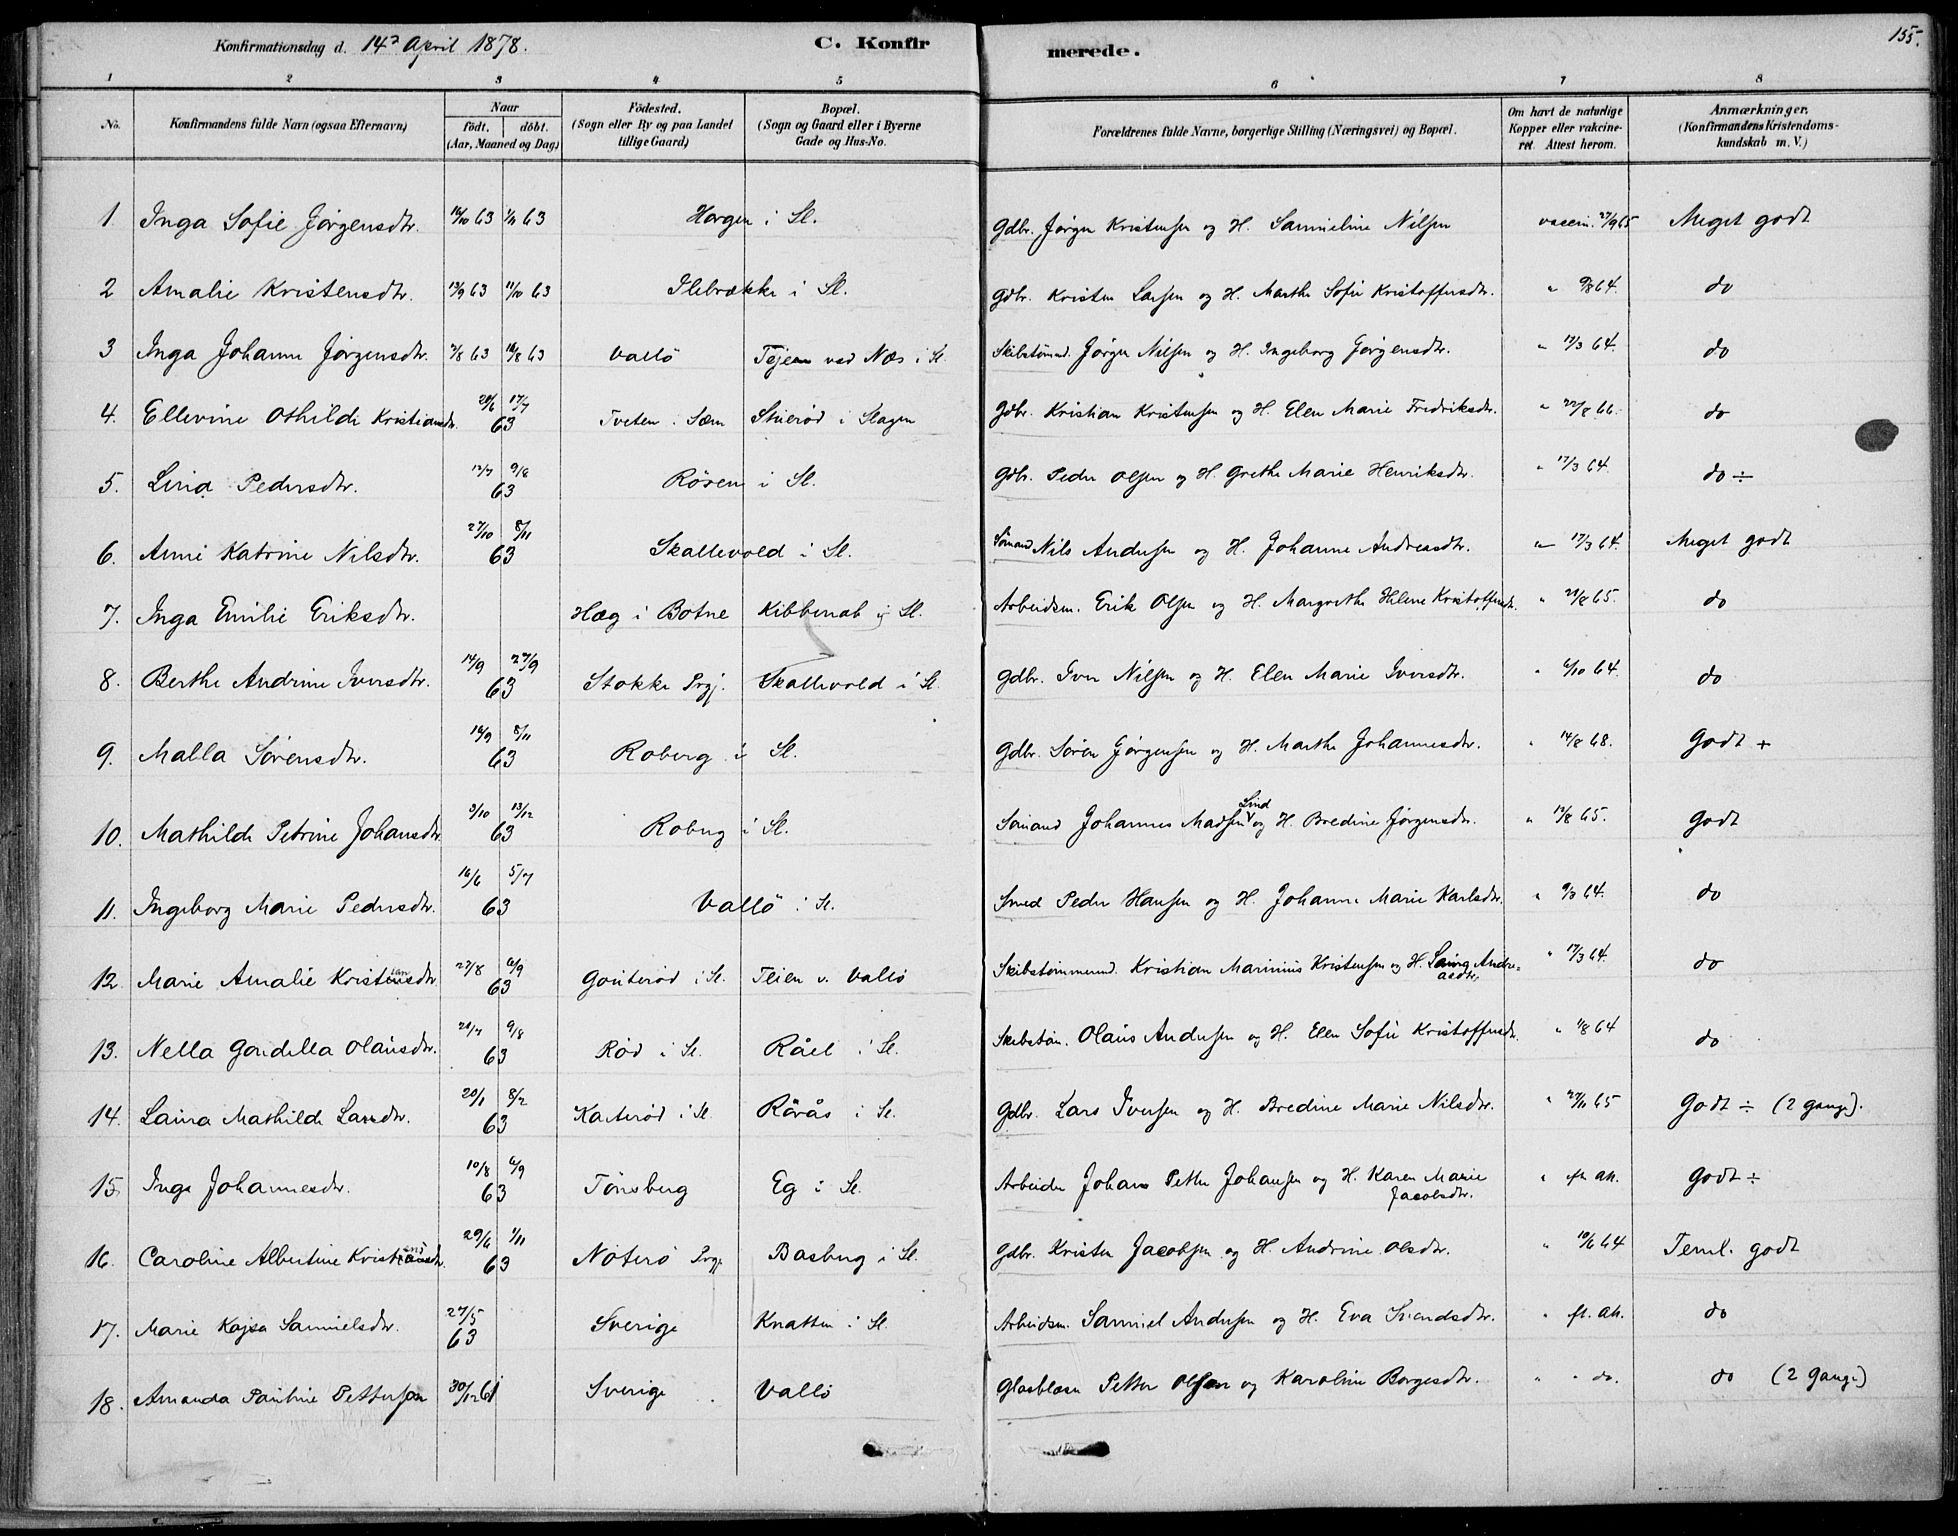 155.
Konfirmationsdag d. 14de April 1878. C. Konfirmerede.
1 2 3 4 5 6 7 8
No. Konfirmandens fulde Navn (ogsaa Efternavn) Naar født. døbt. (Aar, Maaned og Dag) Fødested. (Sogn eller By og paa Landet tillige Gaard) Bopæl. (Sogn og Gaard eller i Byerne Gade og Hus-No. Forældrenes fulde Navne, borgerlige Stilling (Næringsvei) og Bopæl. Om havt de naturlige Kopper eller vakcineret. Attest herom. Anmærkninger. (Konfirmandens Kristendomskundskab m. V.)
1 Inga Sofie Jørgensdtr. 16/10 63 1/11 63 Horgen i Sl. Gdbr. Jørgen Kristensen og H. Samueline Nilsen vaccin. 27/9 65 Meget godt
2 Amalie Kristensdtr. 13/9 63 11/10 63 Ilebrække i Sl. Gdbr. Kristen Larsen og H. Marthe Sofie Kristoffersdtr. " 9/8 64. do
3 Inga Johanne Jørgensdtr. 2/8 63 16/8 63 Vallö Tejen ved Næs i Sl. Skibstømmd. Jørgen Nilsen og H. Ingeborg Jørgensdtr. " 17/3 64. do
4. Ellevine Othilde Kristiansdtr. 28/6 17/7 63 Tveten i Sem Stuerød i Slagen Gdbr. Kristian Kristensen og H. Elen Marie Fredriksdtr. " 22/8 66. do
5. Lina Pedersdtr. 12/7 9/8 63 Røren i Sl. Gdbr. Peder Olsen og H. Grethe Marie Henriksdtr. " 17/3 64. do ÷
6. Anne Katrine Nilsdtr. 27/10 8/11 63 Skallevold i Sl. Sømand Nils Andersen og H. Johanne Andreasdtr. " 17/3 64. Meget godt
7. Inga Emilie Eriksdtr. Hæg i Botne Kibbenab i Sl. Arbeidsm. Erik Olsen og H. Margrethe Helene Kristoffersdtr. " 21/8 65. do
8. Berthe Andrine Iversdtr. 14/9 27/9 63 Stokke Prgj. Skallevold i Sl. Gdbr. Iver Nilsen og H. Elen Marie Iversdtr. " 6/10 64. do
9. Malla Sørensdtr. 16/9 8/11 63 Roberg i Sl. Gdbr. Søren Jørgensen og H. Marthe Johannesdtr. " 14/8 68. Godt +
10. Mathilde Petrine Johansdtr 3/10 13/12 63 Roberg i Sl. Sømand Johannes Madsen Lind og H. Bredine Jørgensdtr. " 12/8 65. Godt
11. Ingeborg Marie Pedersdtr. 16/6 5/7 63 Vallö i Sl. Smed Peder Hansen og H. Johanne Marie Karlsdtr. " 9/3 64. do
12. Marie Amalie Kristiansdtr. 23/8 6/9 63 Gouterød i Sl. Teien v. Vallö Skibstømmermd. Kristian Marinius Kristensen og H. Laura Andreasdtr. " 17/3 64. do
13. Nella Gondella Olausdtr. 20/7 9/8 63 Rød i Sl. Råel i Sl. Skibstøm. Olaus Andersen og H. Elen Sofie Kristoffersdtr. " 1/8 64 do
14. Laura Mathilde Larsdtr. 20/1 8/2 63 Karterød i Sl. Rørås i Sl. Gdbr. Lars Iversen og H. Bredine Marie Nilsdtr. " 27/11 65 Godt ÷ (2 gange).
15. Inga Johannesdtr. 10/8 6/9 63 Tønsberg Eg i Sl. Arbeider Johans Petter Johansen og H. Karen Marie Jacobsdtr. " eft. att. Godt ÷
16. Caroline Albertine Kristensdtr. 29/6 1/11 63 Nøterø Prgj. Basberg i Sl. Gdbr. Kristen Jacobsen og H. Andrine Olsdtr. " 10/6 64 Teml. godt
17. Marie Kajsa Samuelsdtr. 27/5 63 Sverige Knatten i Sl. Arbeidsm. Samuel Andersen og H. Eva Svendsdtr. " ft. att. do
18. Amanda Pauline Pettersen 30/12 61 Sverige Vallö Glasblæser Petter Olsen og Karoline Borgesdtr. " " do. do (2 Gange)